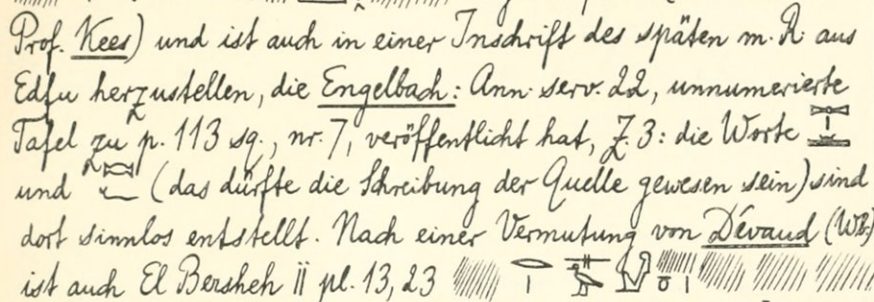 Prof. Kees) und ist auch in einer Inschrift des späten m. R. aus
Edfu herzustellen, die Engelbach: Ann. serv. 22, unnumerierte
Tafel zu p. 113 sq., nr. 7, veröffentlicht hat, Z. 3: die Worte
und (das dürfte die Schreibung der Quelle gewesen sein) sind
dort sinnlos entstellt. Nach einer Vermutung von Dévaud (Wb.)
ist auch El Bersheh II pl. 13, 23